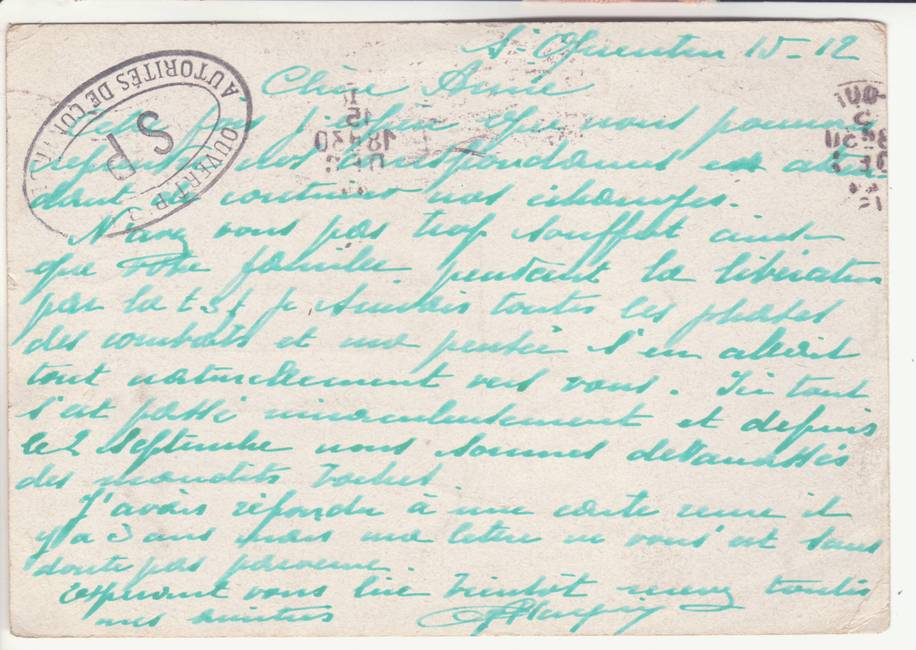 St Quentin 15-12
Chère Amie
pas nous pouvons
correspondances en atten
dant de continuer nos échanges.
N'avez vous pas trop souffert ainsi
que votre famille pendant la libération
par la t.s.f je suivais toutes les phases
des combats et ma pensée s'en allait
tout naturellement vers vous. Ici tout
s'est passé miraculeusement et depuis
le 2 septembre nous sommes débarrassés
des maudits boches.
J'avais répondu à une carte reçue il
y a 3 ans mais ma lettre ne vous est sans
doute pas parvenue.
Espérant vous lire bientôt recevez toutes
mes amitiés
OUVERT PAR
AUTORITÉS DE CONTR
S P
15
18H30